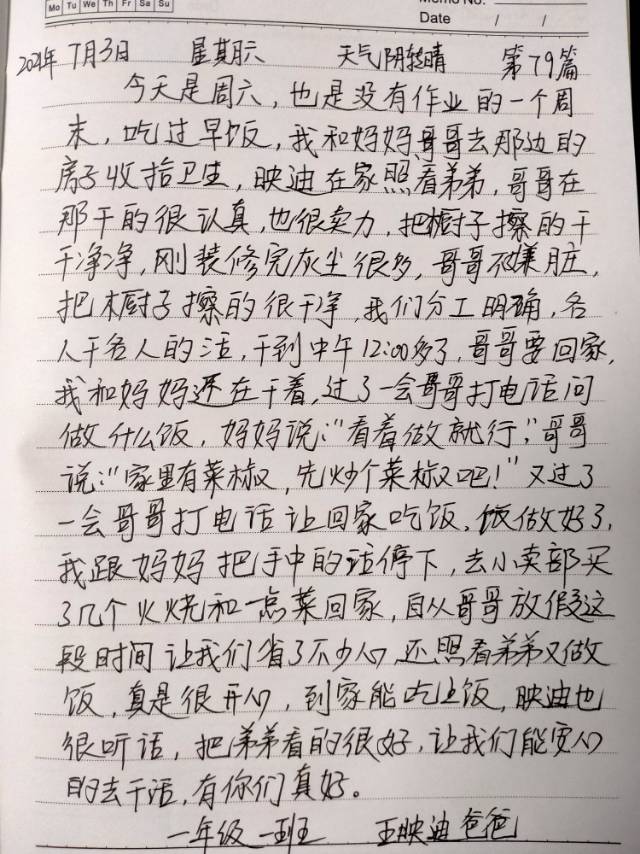 Mo Tu We Th Fr Sa Su
Memo No.
Date / /
2021年7月3日 星期六 天气阴转晴 第79篇
今天是周六，也是没有作业的一个周
末，吃过早饭，我和妈妈哥哥去那边的
房子收拾卫生，映迪在家照看弟弟，哥哥在
那干的很认真，也很卖力，把橱子擦的干
干净净，刚装修完灰尘很多，哥哥不嫌脏，
把橱子擦的很干净，我们分工明确，各
人干各人的活，干到中午12:00多了，哥哥要回家，
我和妈妈还在干着，过了一会哥哥打电话问
做什么饭，妈妈说：“看着做就行，”哥哥
说：“家里有菜椒，先炒个菜椒吧！”又过了
一会哥哥打电话让回家吃饭，饭做好了，
我跟妈妈把手中的活停下，去小卖部买
了几个火烧和一点菜回家，自从哥哥放假这
段时间让我们省了不少心，还照看弟弟又做
饭，真是很开心，到家能吃上饭，映迪也
很听话，把弟弟看的很好，让我们能安心
的去干活，有你们真好。
一年级一班 王映迪爸爸